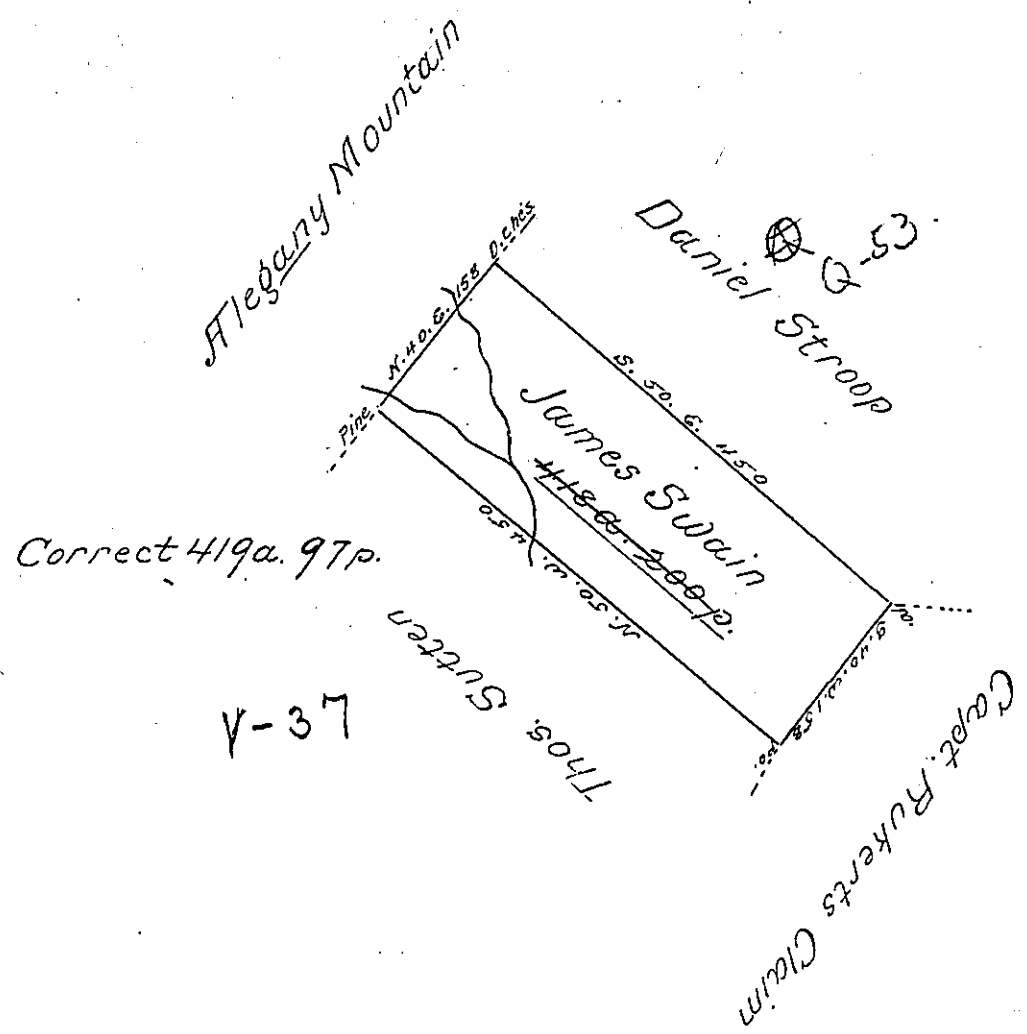 Alegany Mountain
Daniel Stroop
Q-53
N. 40. E. 158
D. Ches
S. 50. E. 450
James Swain
418a. 200p.
Pine
N. 50. W. 450
S. 40. W. 158
W.o.
Correct 419a. 97p.
V-37
Thos. Sutten
Capt. Rukerts Claim